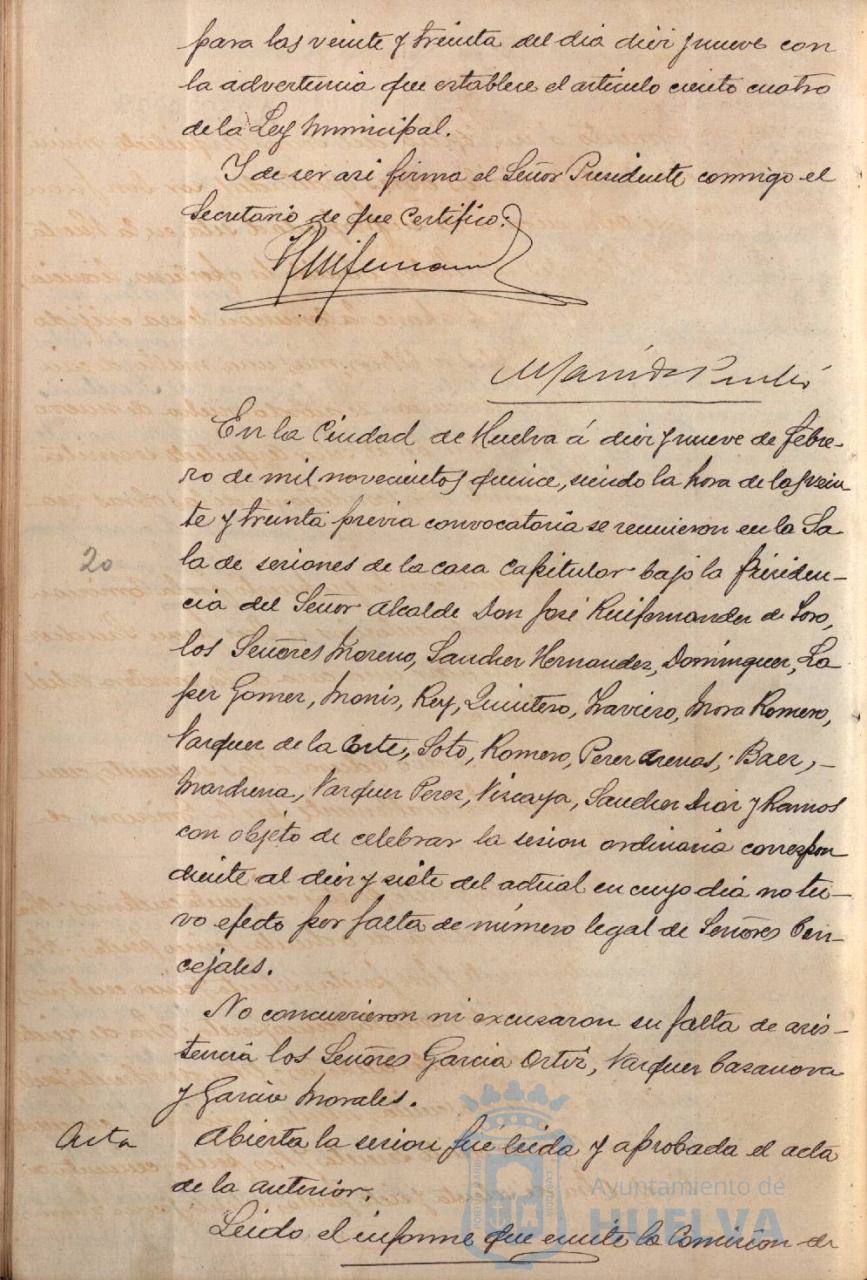 para las veinte y treinta del dia diez y nueve con
la advertencia que establece el artículo ciento cuatro
de la Ley Municipal.
Y de ser asi firma el Señor Presidente conmigo el
Secretario de que Certifico.
En la Ciudad de Huelva á diez y nueve de febre-
ro de mil novecientos quince, siendo la hora de las vein
te y treinta previa convocatoria se reunieron en la Sa-
la de sesiones de la casa Capitular bajo la presiden-
20
cia del Señor Alcalde Don José Ruifernandez de Soro,
los Señores Moreno, Sanchez Hernandez, Domínguez, Lo
pez Gomez, Monis, Rey, Quintero, Mora Romero,
Vazquez de la Corte, Soto, Romero, Perez Arenas, Baez,-
Marchena, Vazquez Perez, Viscaya, Sanchez Diaz y Ramos
con objeto de celebrar la sesion ordinaria correspon
diente al diez y siete del actual en cuyo dia no tu-
vo efecto por falta de número legal de Señores Con-
cejales.
No concurrieron ni excusaron su falta de asis-
tencia los Señores Garcia Ortiz, Vazquez Casanova
y Garcia Morales.
Acta
Abierta la sesion fue leida y aprobada el acta
de la anterior.
Ayuntamiento de
HUELVA
Leido el informe que emite la Comision de